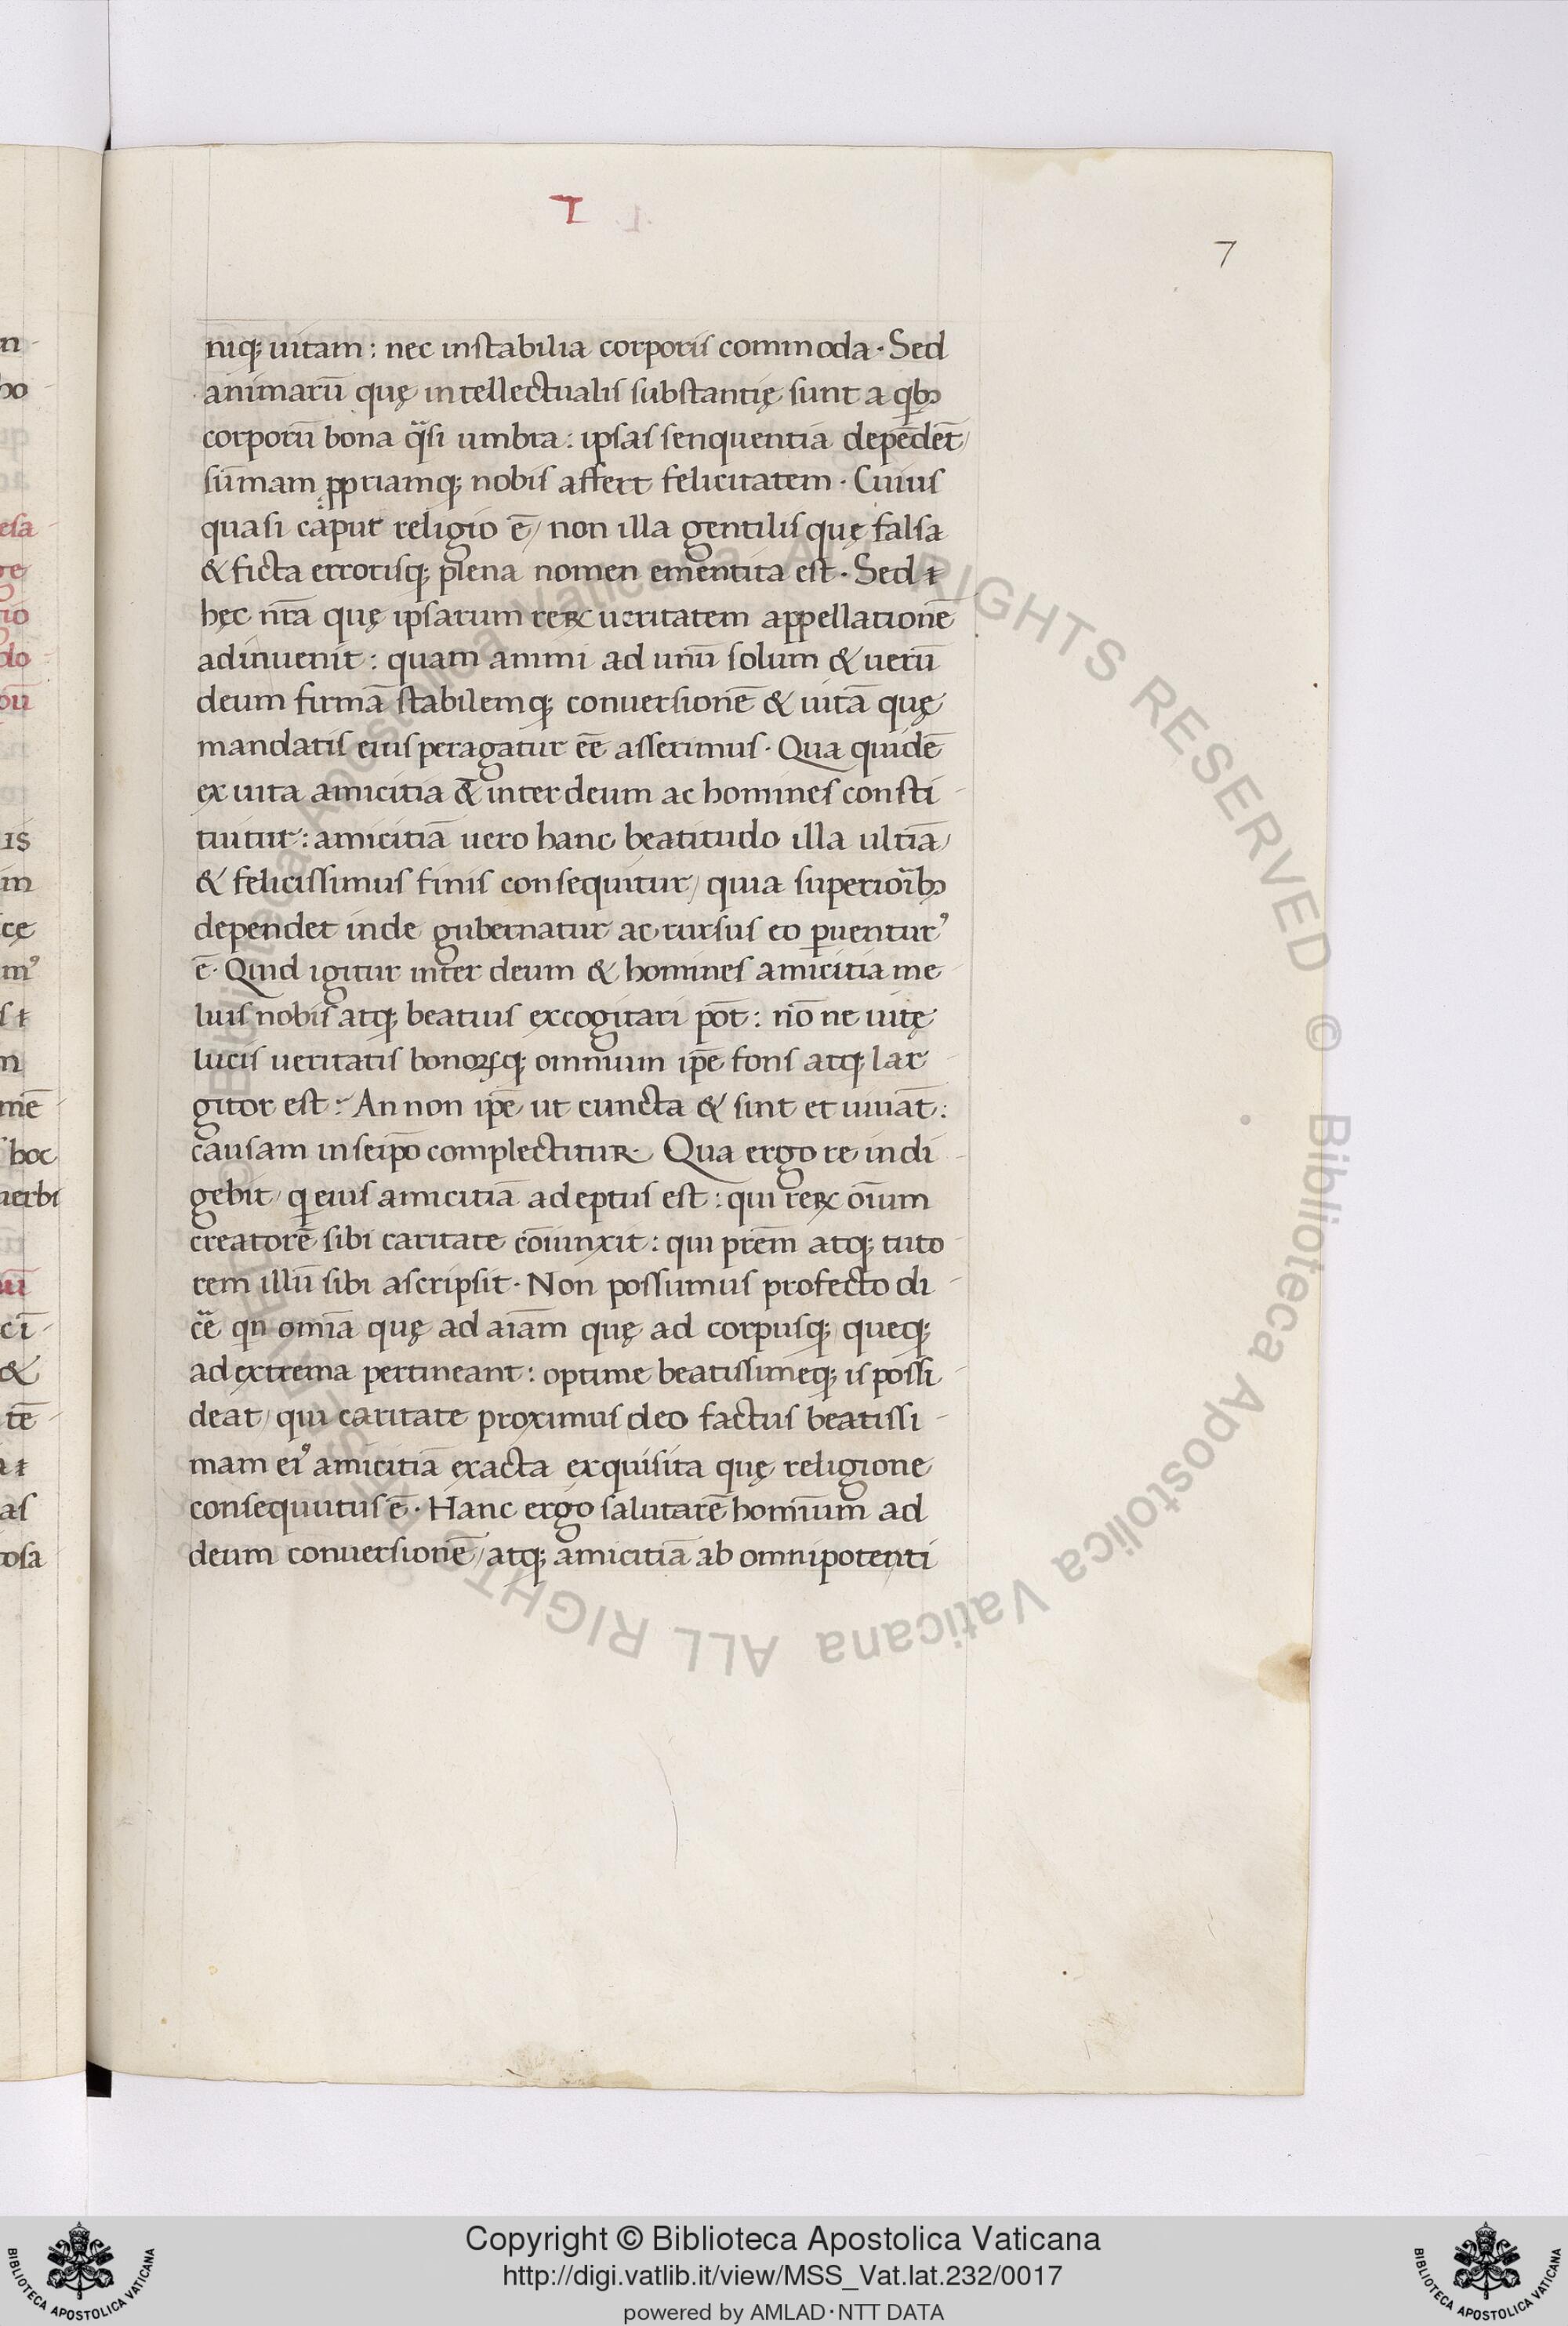 I
7
niq; uitam: nec instabilia corporis commoda. Sed
animarū quę intellectualis substantię sunt a qbꝫ
corporū bona qͣsi umbra: ipsas senquentia depēdēt/
sūmam ꝓpriamq; nobis affert felicitatem. Cuius
quasi caput religio ē/ non illa gentilis quę falsa
& ficta errorisq; plena nomen ementita est. Sed ⁊
hęc nr̄a quę ipsarum reꝝ ueritatem appellationē
adinuenit: quam animi ad unū solum & uerū
deum firmā stabilemq; conuersionē & uitā quę
mandatis eius peragatur eē asserimus. Qua quidē
ex uita amicitia & inter deum ac homines consti
tuitur: amicitiā uero hanc beatitudo illa ultīa/
& felicissimus finis consequitur/ quia superioībꝫ
dependet inde gubernatur ac rursus eo ꝑuenturꝰ
ē. Quid igitur inter deum & homines amicitia me
luis nobis atq; beatius excogitari pōt: nō ne uitę
lucis ueritatis bonoꝝq; omnium ip̄e fons atq; lar
gitor est: An non ip̄e ut cuncta & sint et uiuāt:
causam in seip̄o complectitur. Qua ergo re indi
gebit/ q eius amicitiā adeptus est: qui reꝝ oīum
creatorē sibi caritate cōiunxit: qui prēm atq; tuto
rem illū sibi ascripsit. Non possumus profecto di
cē qn omīa quę ad aīam quę ad corpusq; queq;
ad extrema pertineant: optime beatissimeq; is possi
deat/ qui caritate proximus deo factus beatissi
mam eiꝰ amicitiā exacta exquisita quę religione
consequutus ē. Hanc ergo salutarē homīum ad
deum conuersionē/ atq; amicitiā ab omnipotenti
Copyright © Biblioteca Apostolica Vaticana
http://digi.vatlib.it/view/MSS_Vat.lat.232/0017
powered by AMLAD·NTT DATA